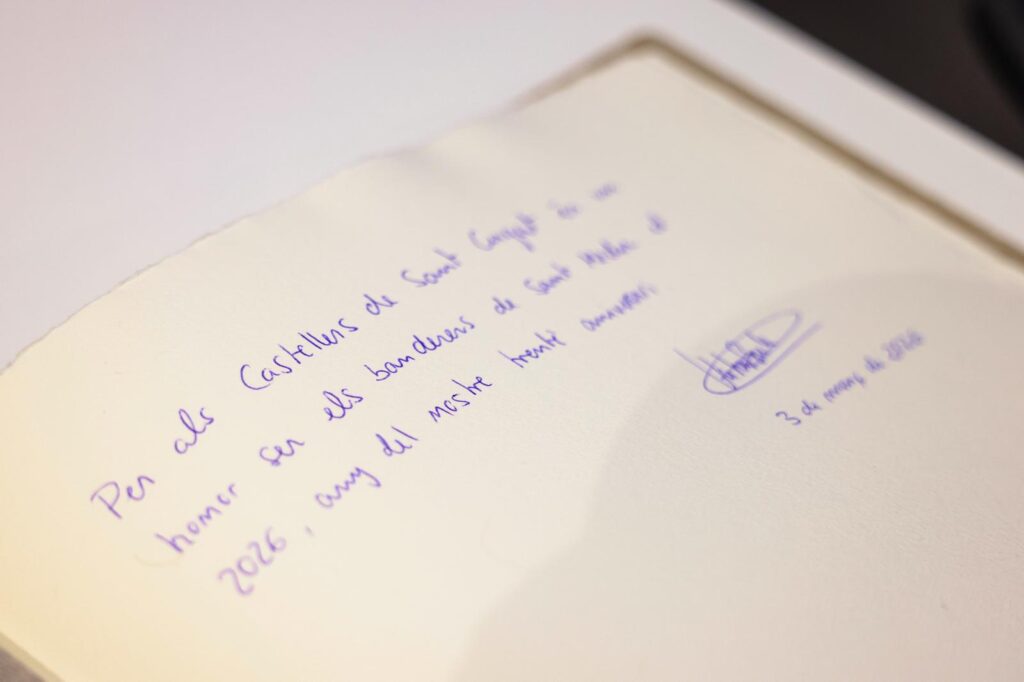 Per als Castellers de Sant Cugat és un
honor ser els banderers de Sant Medir el
2026, any del nostre trentè aniversari.
3 de març de 2026